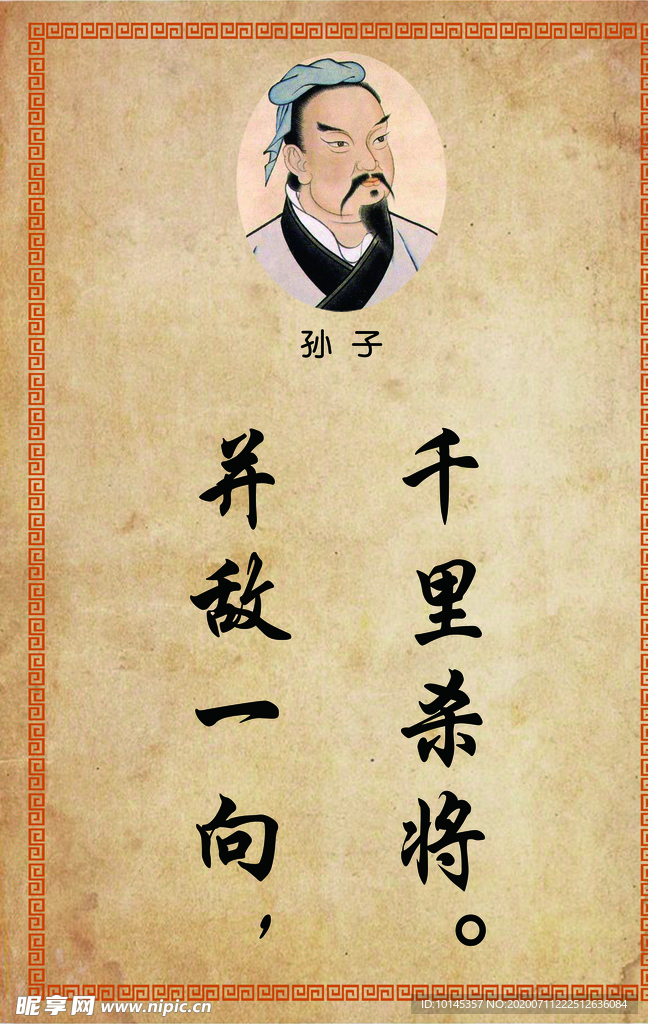 孙子
并敌一向，
千里杀将。
昵享网 www.nipic.cn
ID:10145357 NO:20200711222512636084